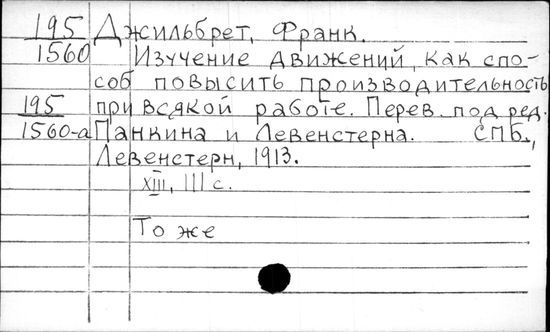 195 Джильбрет, Франк.
1560 Изучение движений, как спо-
соб повысить производительность
195 при всякой работе. Перев. под ред.
1560-а Панкина и Левенстерна. СПБ.,
Левенстерн, 1913.
XIII, 111 с.
То же